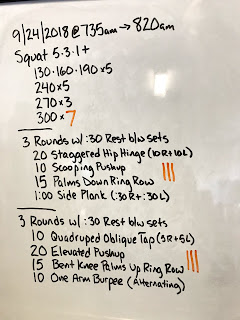 9/24/2018 @ 735am → 820am
Squat 5·3·1+
130·160·190x5
240x5
270x3
300x7
3 Rounds w/:30 Rest b/w sets
20 Staggered Hip Hinge (10R+10L)
10 Scooping Pushup
15 Palms Down Ring Row III
1:00 Side Plank (:30R+:30L)
3 Rounds w/:30 Rest b/w sets
10 Quadruped Oblique Tap (5R+5L)
20 Elevated Pushup
15 Bent Knee Palms Up Ring Row III
10 One Arm Burpee (Alternating)